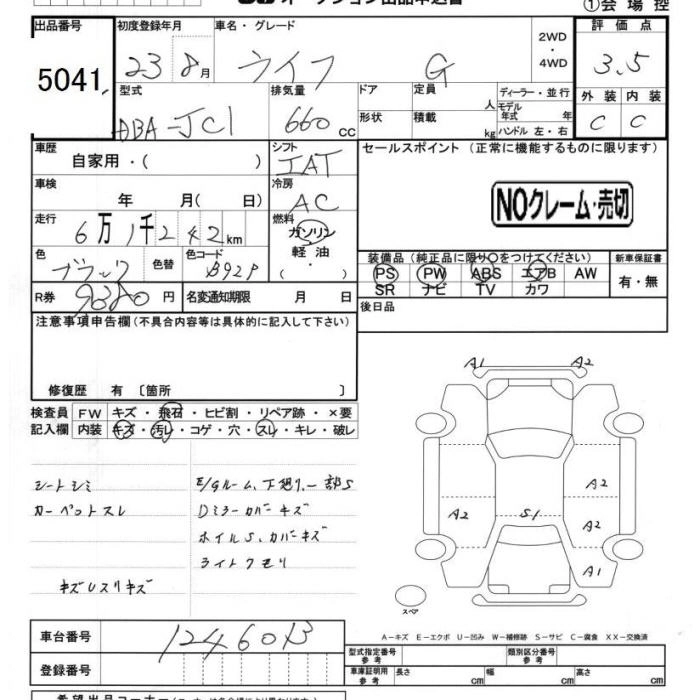 オークション出品申込書 ①会場控
出品番号 初度登録年月 車名・グレード 2WD・4WD 評価点
5041 23 8月 ライフ G 3.5
型式 排気量 ドア 定員 人 ディーラー・並行 外装 内装
DBA-JC1 660cc 形状 積載 kg モデル年式 年 ハンドル 左・右 C C
車歴 自家用・( ) シフト IAT セールスポイント (正常に機能するものに限ります)
車検 年 月( 日) 冷房 AC NOクレーム・売切
走行 6万1千242km 燃料 ガソリン 軽油・( )
色 ブラック 色替 色コード B92P
装備品(純正品に限り○をつけてください) 新車保証書
PS PW ABS エアB AW 有・無
SR ナビ TV カワ
R券 9380円 名変通知期限 月 日 後日品
注意事項申告欄(不具合内容等は具体的に記入して下さい)
修復歴 有〔箇所 〕
検査員 FW キズ・飛石・ヒビ割・リペア跡・×要
記入欄 内装 キズ・汚レ・コゲ・穴・スレ・キレ・破レ
シートシミ
カーペットスレ
キズUスリキズ
E/Gルーム、下廻り一部S
Dミラーカバーキズ
ホイルS、カバーキズ
ライトクモリ
A1 A2
A2
A2 S1 A2
A1
スペア
A-キズ E-エクボ U-凹み W-補修跡 S-サビ C-腐食 XX-交換済
車台番号 1246013
登録番号
型式指定番号 参考 類別区分番号 参考
車庫証明用 参考 長さ cm 幅 cm 高さ cm
希望出品コーナー